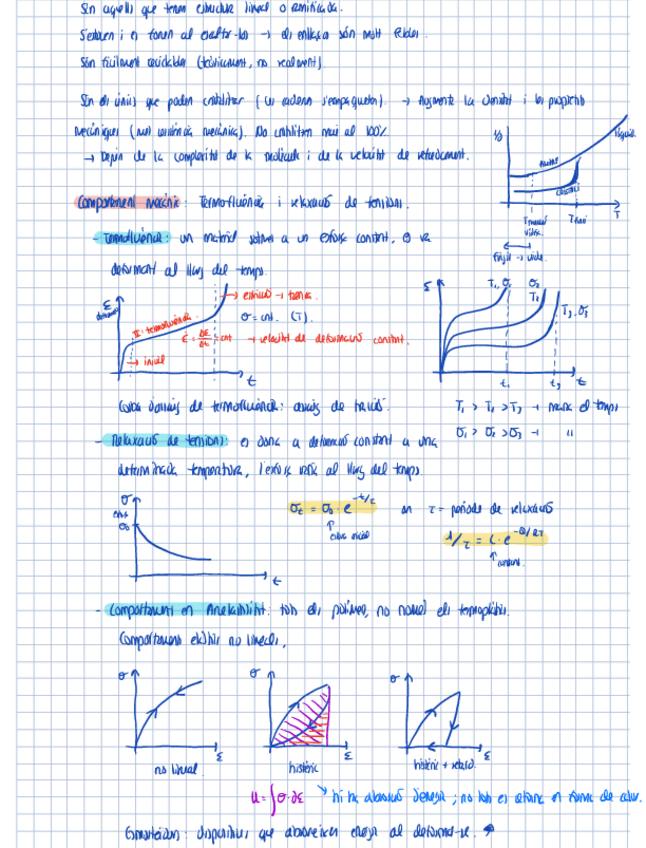 Són aquells que tenen estructura lineal o ramificada.
S'estoven i es tornen al escalfar-los → els enllaços són molt febles.
Són fàcilment reciclables (teòricament, no realment).
Són els únics que poden cristal·litzar (les cadenes s'empaqueten). → Augmenta la densitat i les propietats
mecàniques (resistència mecànica). No cristal·litzen mai al 100%
→ Depèn de la complexitat de la molècula i de la velocitat de refredament.
líquid
T
Tfusió
Comportament mecànic: Termofluència i relaxació de tensions.
- Termofluència: un material sotmès a un esforç constant, es va
deformant al llarg del temps.
ε
→ trenca
σ = cnt. (T).
II: termofluència
ε̇ = Δε/Δt = cnt → velocitat de deformació constant.
→ inicial
t
ε
T₁, σ₁
σ₂
T₂
T₃, σ₃
t₁
t₃
t
Corba d'assaig de termofluència: assaig de tracció.
T₁ > T₂ > T₃ → temps
σ₁ > σ₂ > σ₃ → "
- Relaxació de tensions: es dona a deformació constant a una
determinada temperatura, l'esforç varia al llarg del temps.
σ
σ₀
t
σt = σ₀ · e^(-t/τ) on τ = període de relaxació
esforç inicial
1/τ = C · e^(-Q/RT)
constant.
- Comportament en Anelasticitat: tots els polímers, no només els termoplàstics.
Comportaments elàstics no lineals.
σ
ε
no lineal
σ
ε
histèric
σ
ε
histèric + retard
U = ∫σ·dε
hi ha absorció d'energia; no tot es retorna en forma de calor.
Esmorteïdors: dispositius que absorbeixen energia al deformar-se.